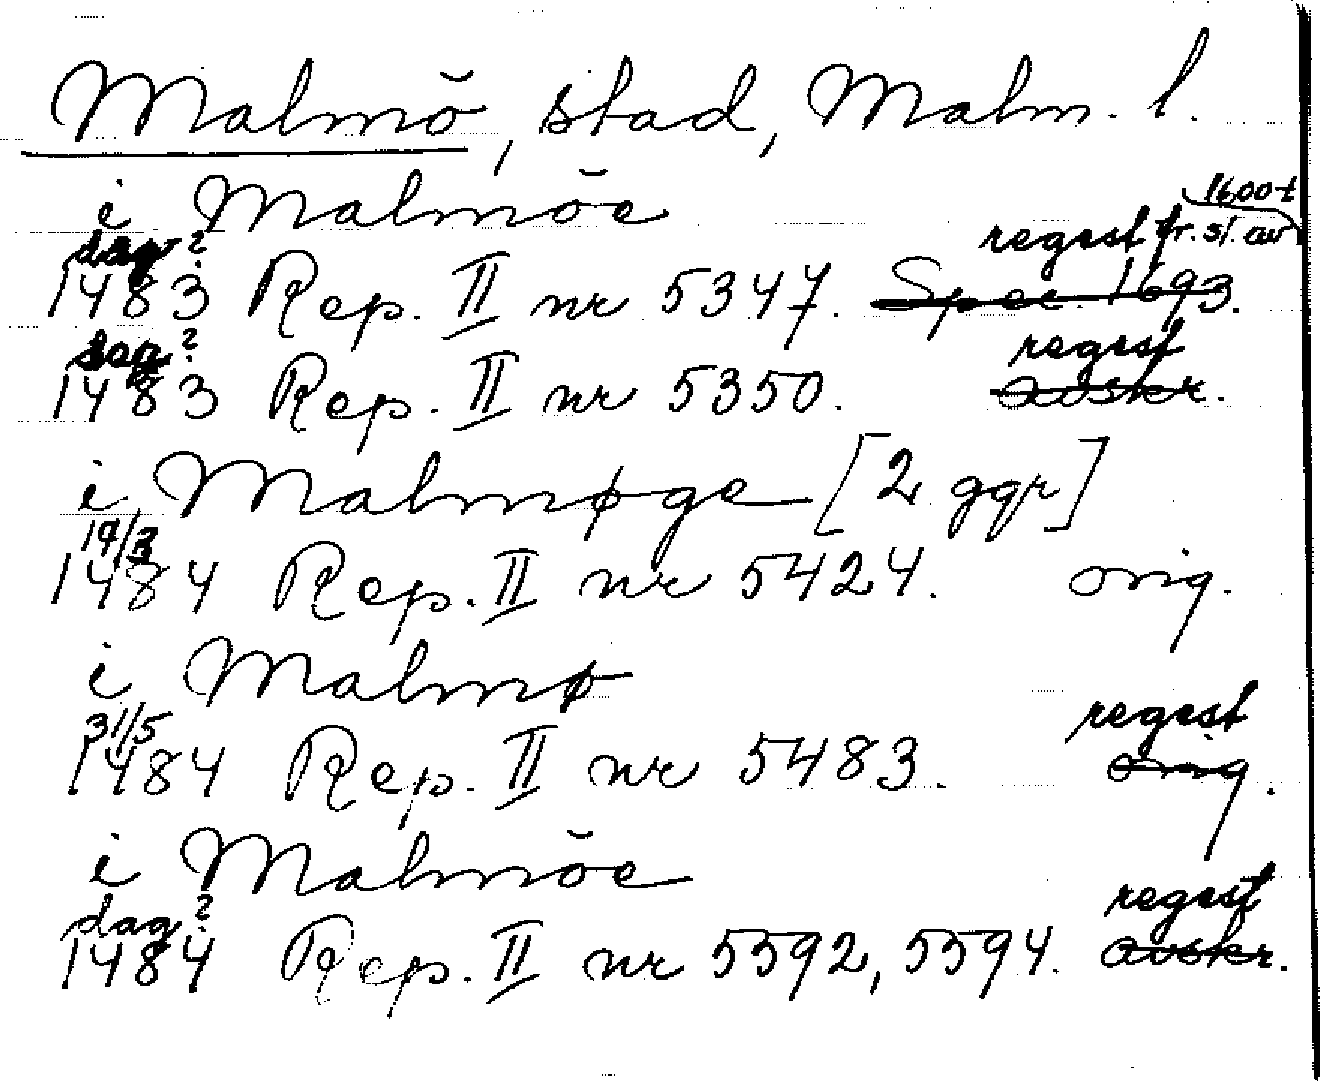 Malmö, stad, Malm. l.
i Malmöe
dag? regest fr. sl. av 1600-t
1483 Rep. II nr 5347. Spec. 1693.
dag? regest
1483 Rep. II nr 5350. avskr.
i Malmøge [2 ggr]
1484 Rep. II nr 5424. orig.
i Malmø
31/5 regest
1484 Rep. II nr 5483. orig.
i Malmöe
dag? regest
1484 Rep. II nr 5592, 5594. avskr.